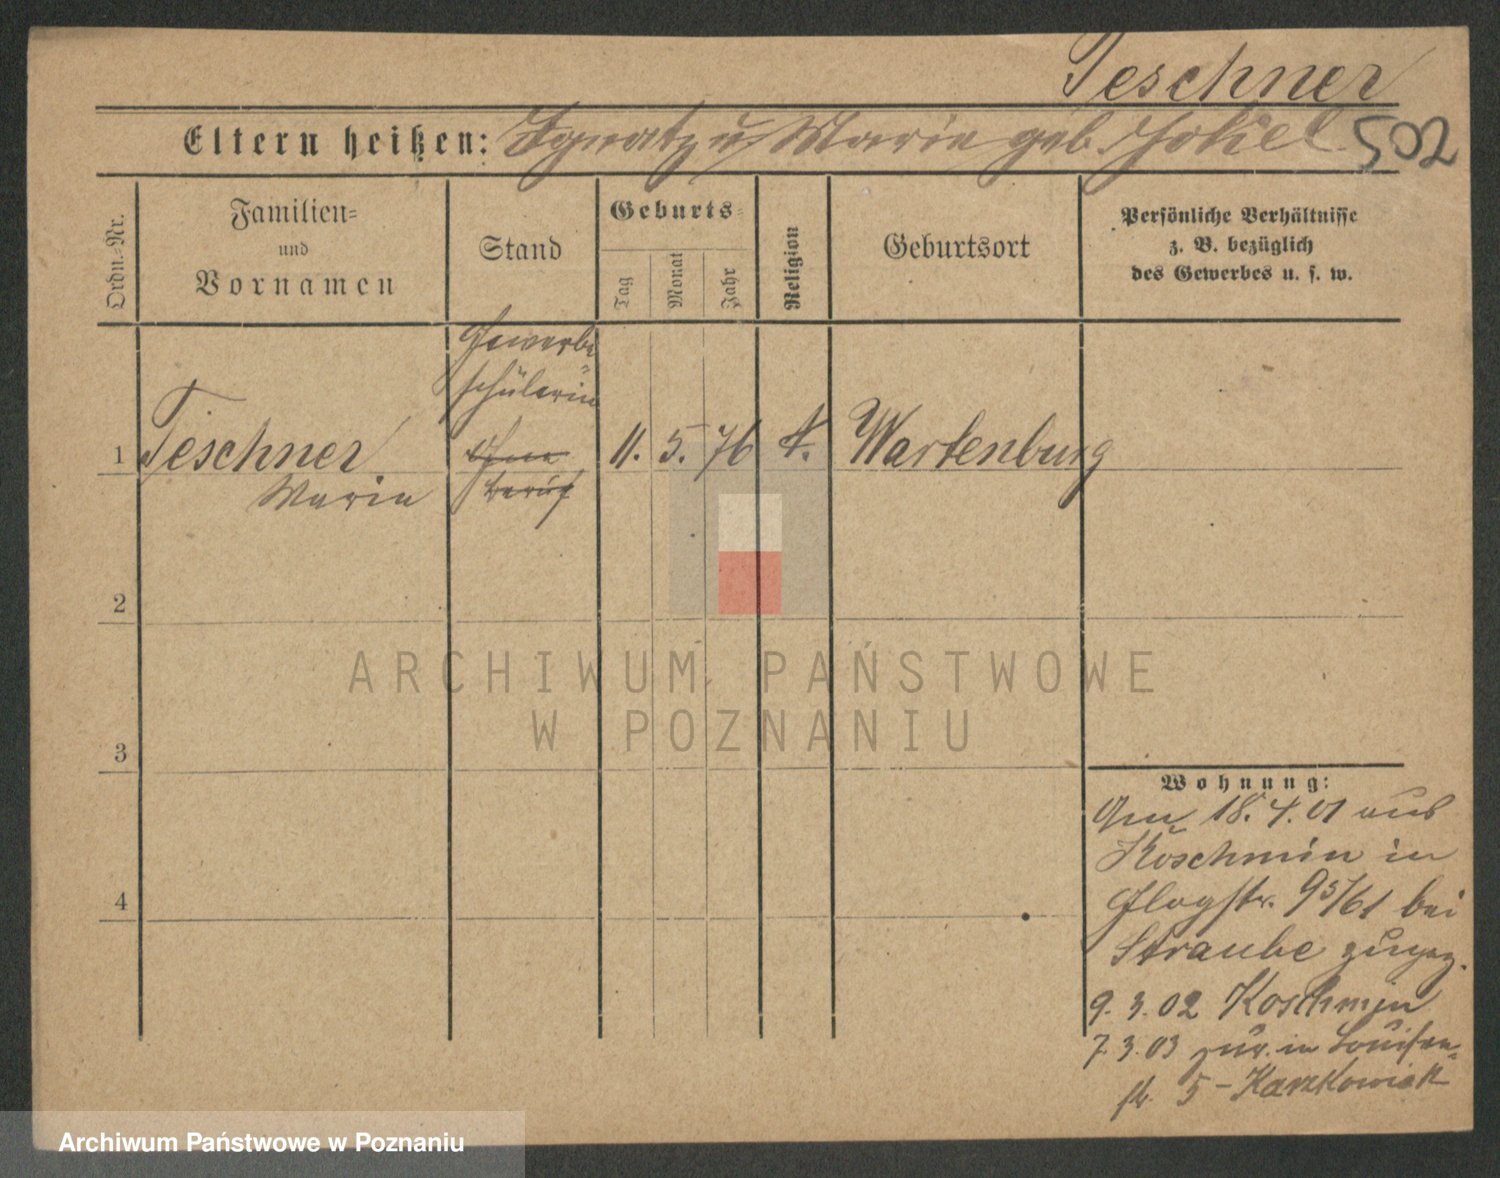 Teschner
Eltern heißen: Ignatz u. Marie geb. Jokiel 502
Ordn.-Nr.
Familien-
und
Vornamen
Stand
Geburts-
Tag
Monat
Jahr
Religion
Geburtsort
Persönliche Verhältnisse
z. B. bezüglich
des Gewerbes u. s. w.
Gewerbe-
schülerin
1 Teschner 11. 5. 76 k. Wartenburg
Maria
ohne
Beruf
2
3
4
ARCHIWUM PAŃSTWOWE
W POZNANIU
Wohnung:
Am 18.4.01 aus
Koschmin in
95/61 bei
Straube zugez.
9.3.02 Koschmin
7.3.03 zur. in Louisen-
str. 5 - Karzkowiak
Archiwum Państwowe w Poznaniu